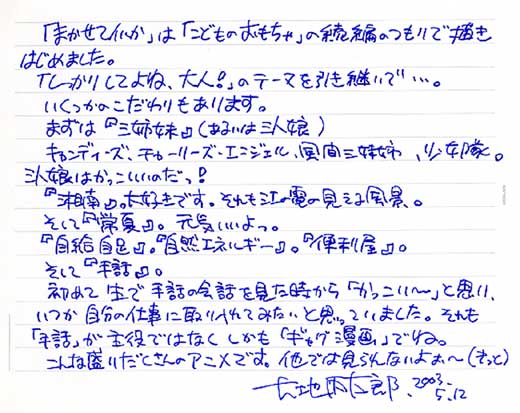 「まかせてイルか」は「こどものおもちゃ」の続編のつもりで描き
はじめました。
「しっかりしてよね、大人!」のテーマを引き継いで…。
いくつかのこだわりもあります。
まずは『三姉妹』(あるいは三人娘)
キャンディーズ、チャーリーズ・エンジェル、風間三姉妹、少女隊。
三人娘はかっこいいのだっ!
『湘南』。大好きです。それも江ノ電の見える風景。
そして『常夏』。元気いいよっ。
『自給自足』。『自然エネルギー』。『便利屋』。
そして『手話』。
初めて生で手話の会話を見た時から「かっこい〜」と思い、
いつか自分の仕事に取り入れてみたいと思っていました。それも
「手話」が主役ではなくしかも『ギャグ漫画』でね。
こんな盛りだくさんのアニメです。他では見られないよぉ〜(きっと)
大地丙太郎 2003.
5.12